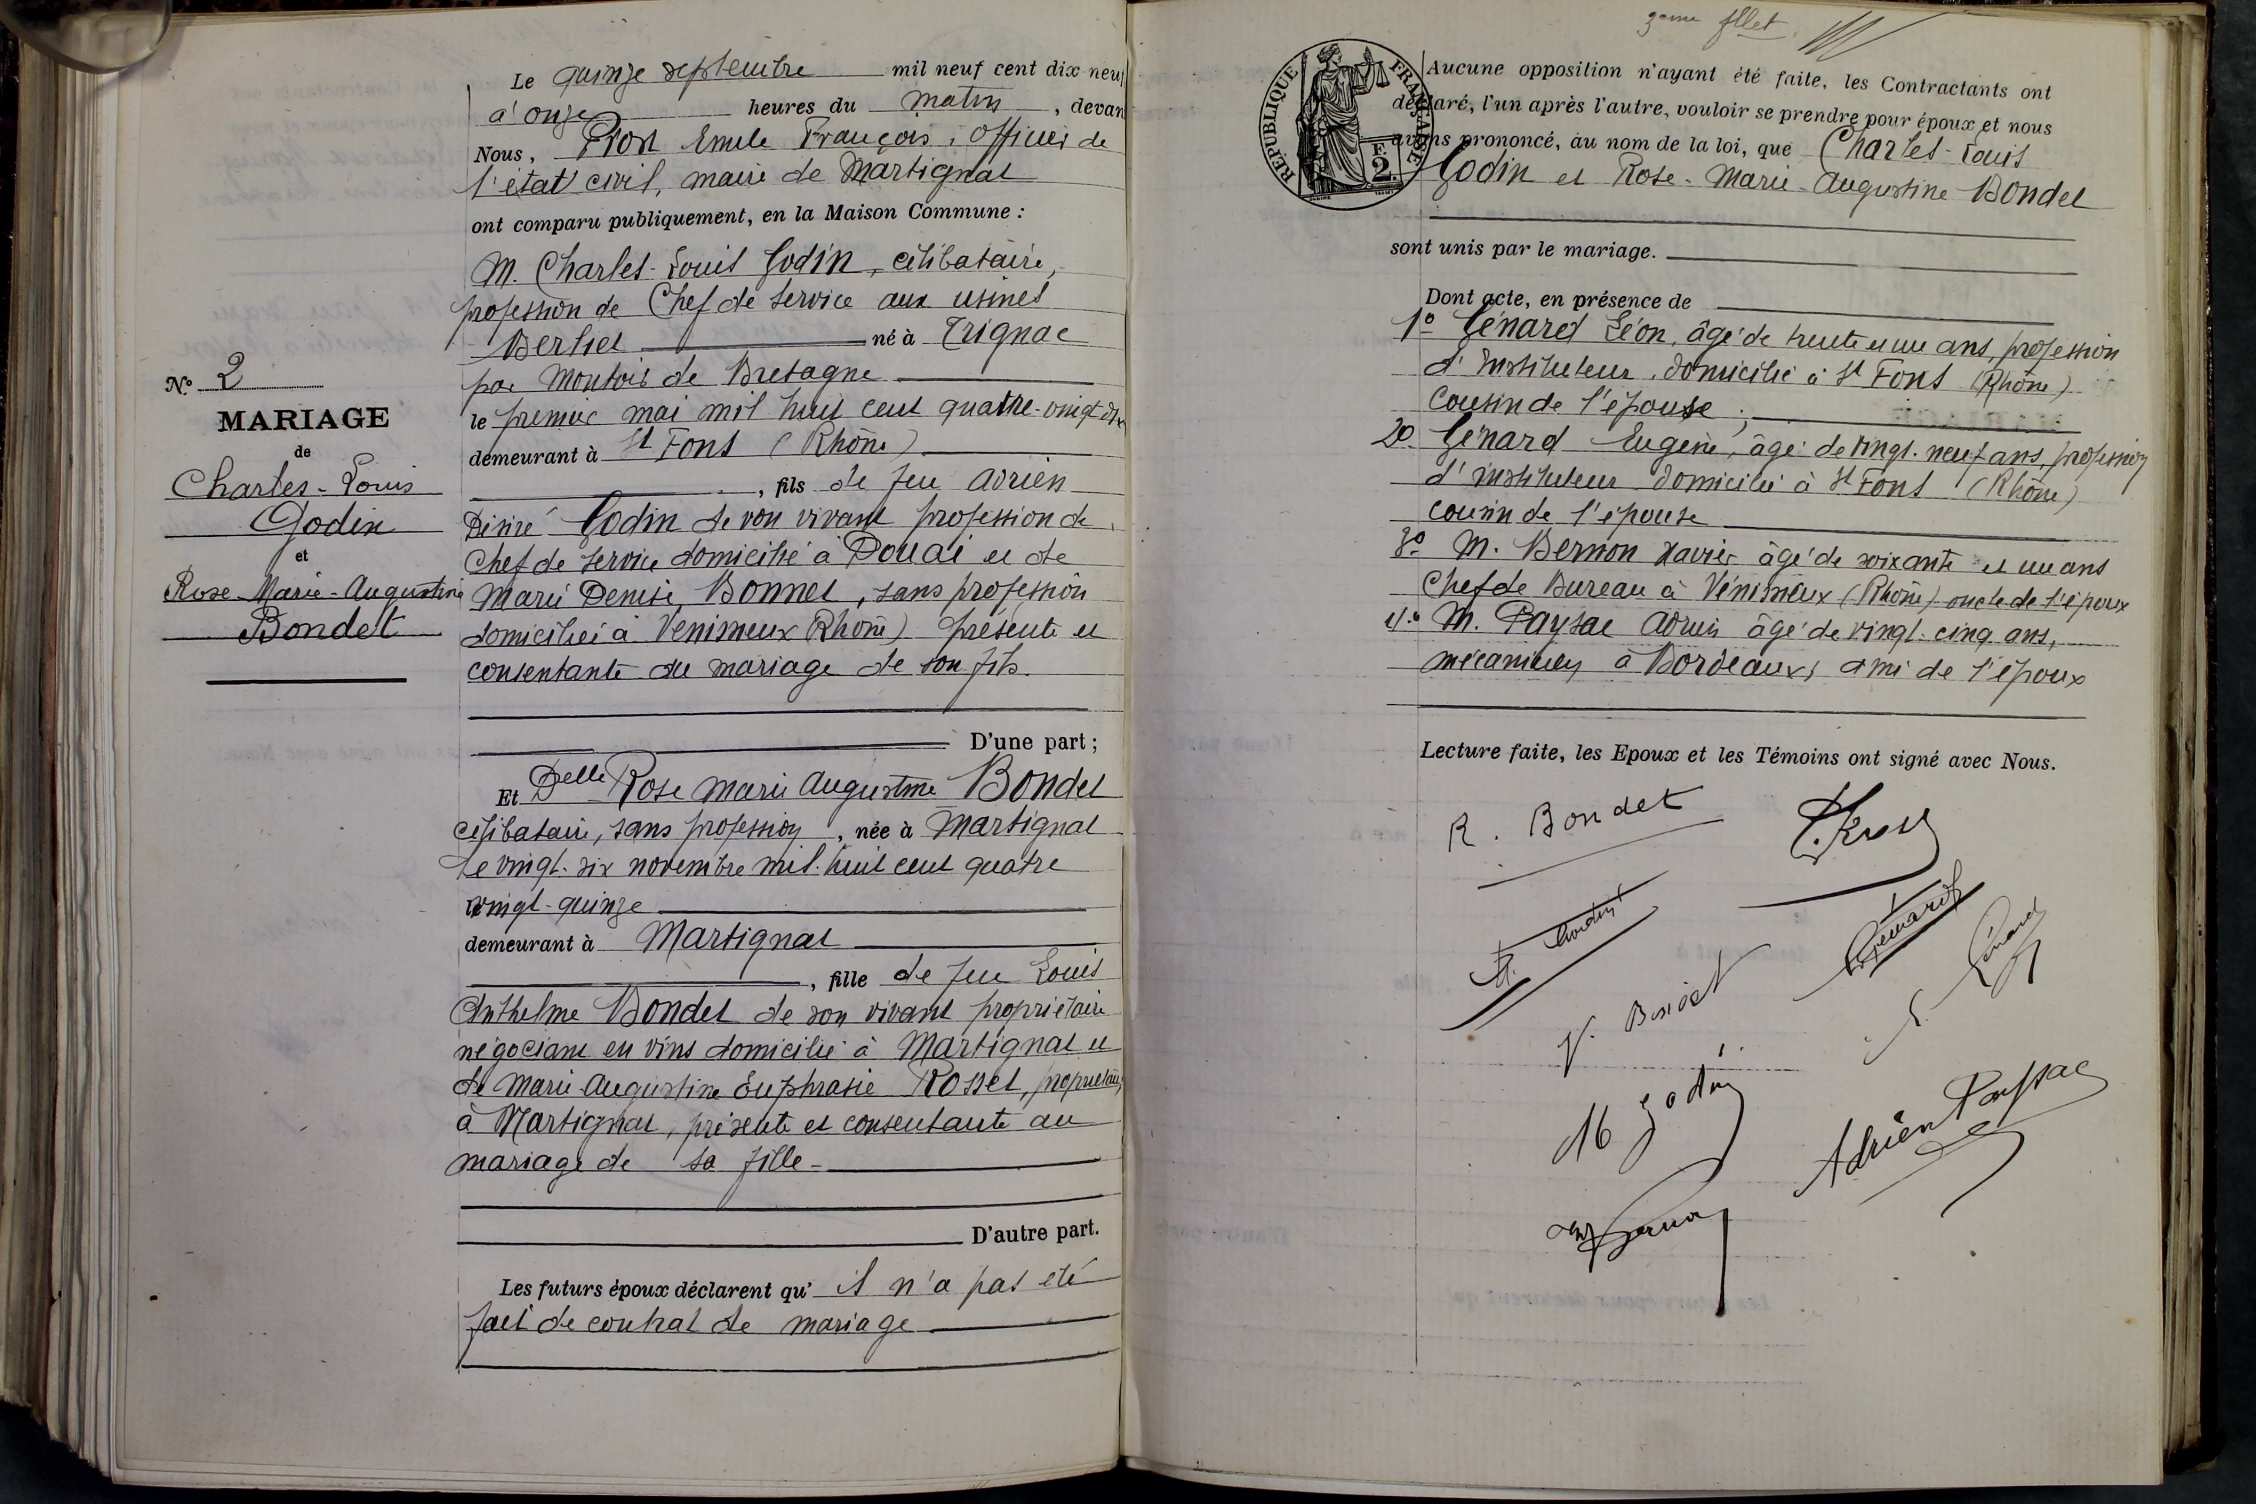 Le quinze septembre mil neuf cent dix neuf
à onze heures du matin, devan
Nous, Emile François, officier de
l'état civil, maire de Martignat
ont comparu publiquement, en la Maison Commune :
M. Charles-Louis Godin, célibataire,
profession de Chef de service aux usines
Berliet né à Trignac
par Montoir de Bretagne
le premier mai mil huit cent quatre-vingt dix
demeurant à St Fons (Rhône)
, fils de feu Adrien
Désiré Godin de son vivant profession de
Chef de service domicilié à Douai et de
Marie Denise Bonnet, sans profession
domiciliée à Venimeux Rhône) présente et
consentante au mariage de son fils.
D'une part ;
Et Delle Rose Marie Augustine Bondet
célibataire, sans profession, née à Martignat
le vingt-six novembre mil-huit cent quatre
vingt-quinze
demeurant à Martignat
, fille de feu Louis
Anthelme Bondet de son vivant propriétaire
négociant en vins domicilié à Martignat et
de Marie-Augustine Euphrasie Rosset, propriétaire
à Martignat, présente et consentante au
mariage de sa fille-
D'autre part.
Les futurs époux déclarent qu'il n'a pas été
fait de contrat de mariage
No 2
MARIAGE
de
Charles-Louis
Godin
et
Rose-Marie-Augustine
Bondet
RÉPUBLIQUE FRANÇAISE
2
Aucune opposition n'ayant été faite, les Contractants ont
déclaré, l'un après l'autre, vouloir se prendre pour époux et nous
avons prononcé, au nom de la loi, que Charles-Louis
Godin et Rose-Marie-Augustine Bondet
sont unis par le mariage.
Dont acte, en présence de
1o Génard Léon, âgé de trente et un ans, profession
d'instituteur, domicilié à St Fons (Rhône)
cousin de l'épouse ;
2o Génard Eugène, âgé de vingt-neuf ans, profession
d'instituteur domicilié à St Fons (Rhône)
cousin de l'épouse
3o M. Bernon Xavier âgé de soixante et un ans
Chef de Bureau à Vénimeux (Rhône) oncle de l'époux
4o M. Paysac Adrien âgé de vingt-cinq ans,
mécanicien à Bordeaux, ami de l'époux
Lecture faite, les Epoux et les Témoins ont signé avec Nous.
R. Bondet
Génard
Godin
Adrien Paysac